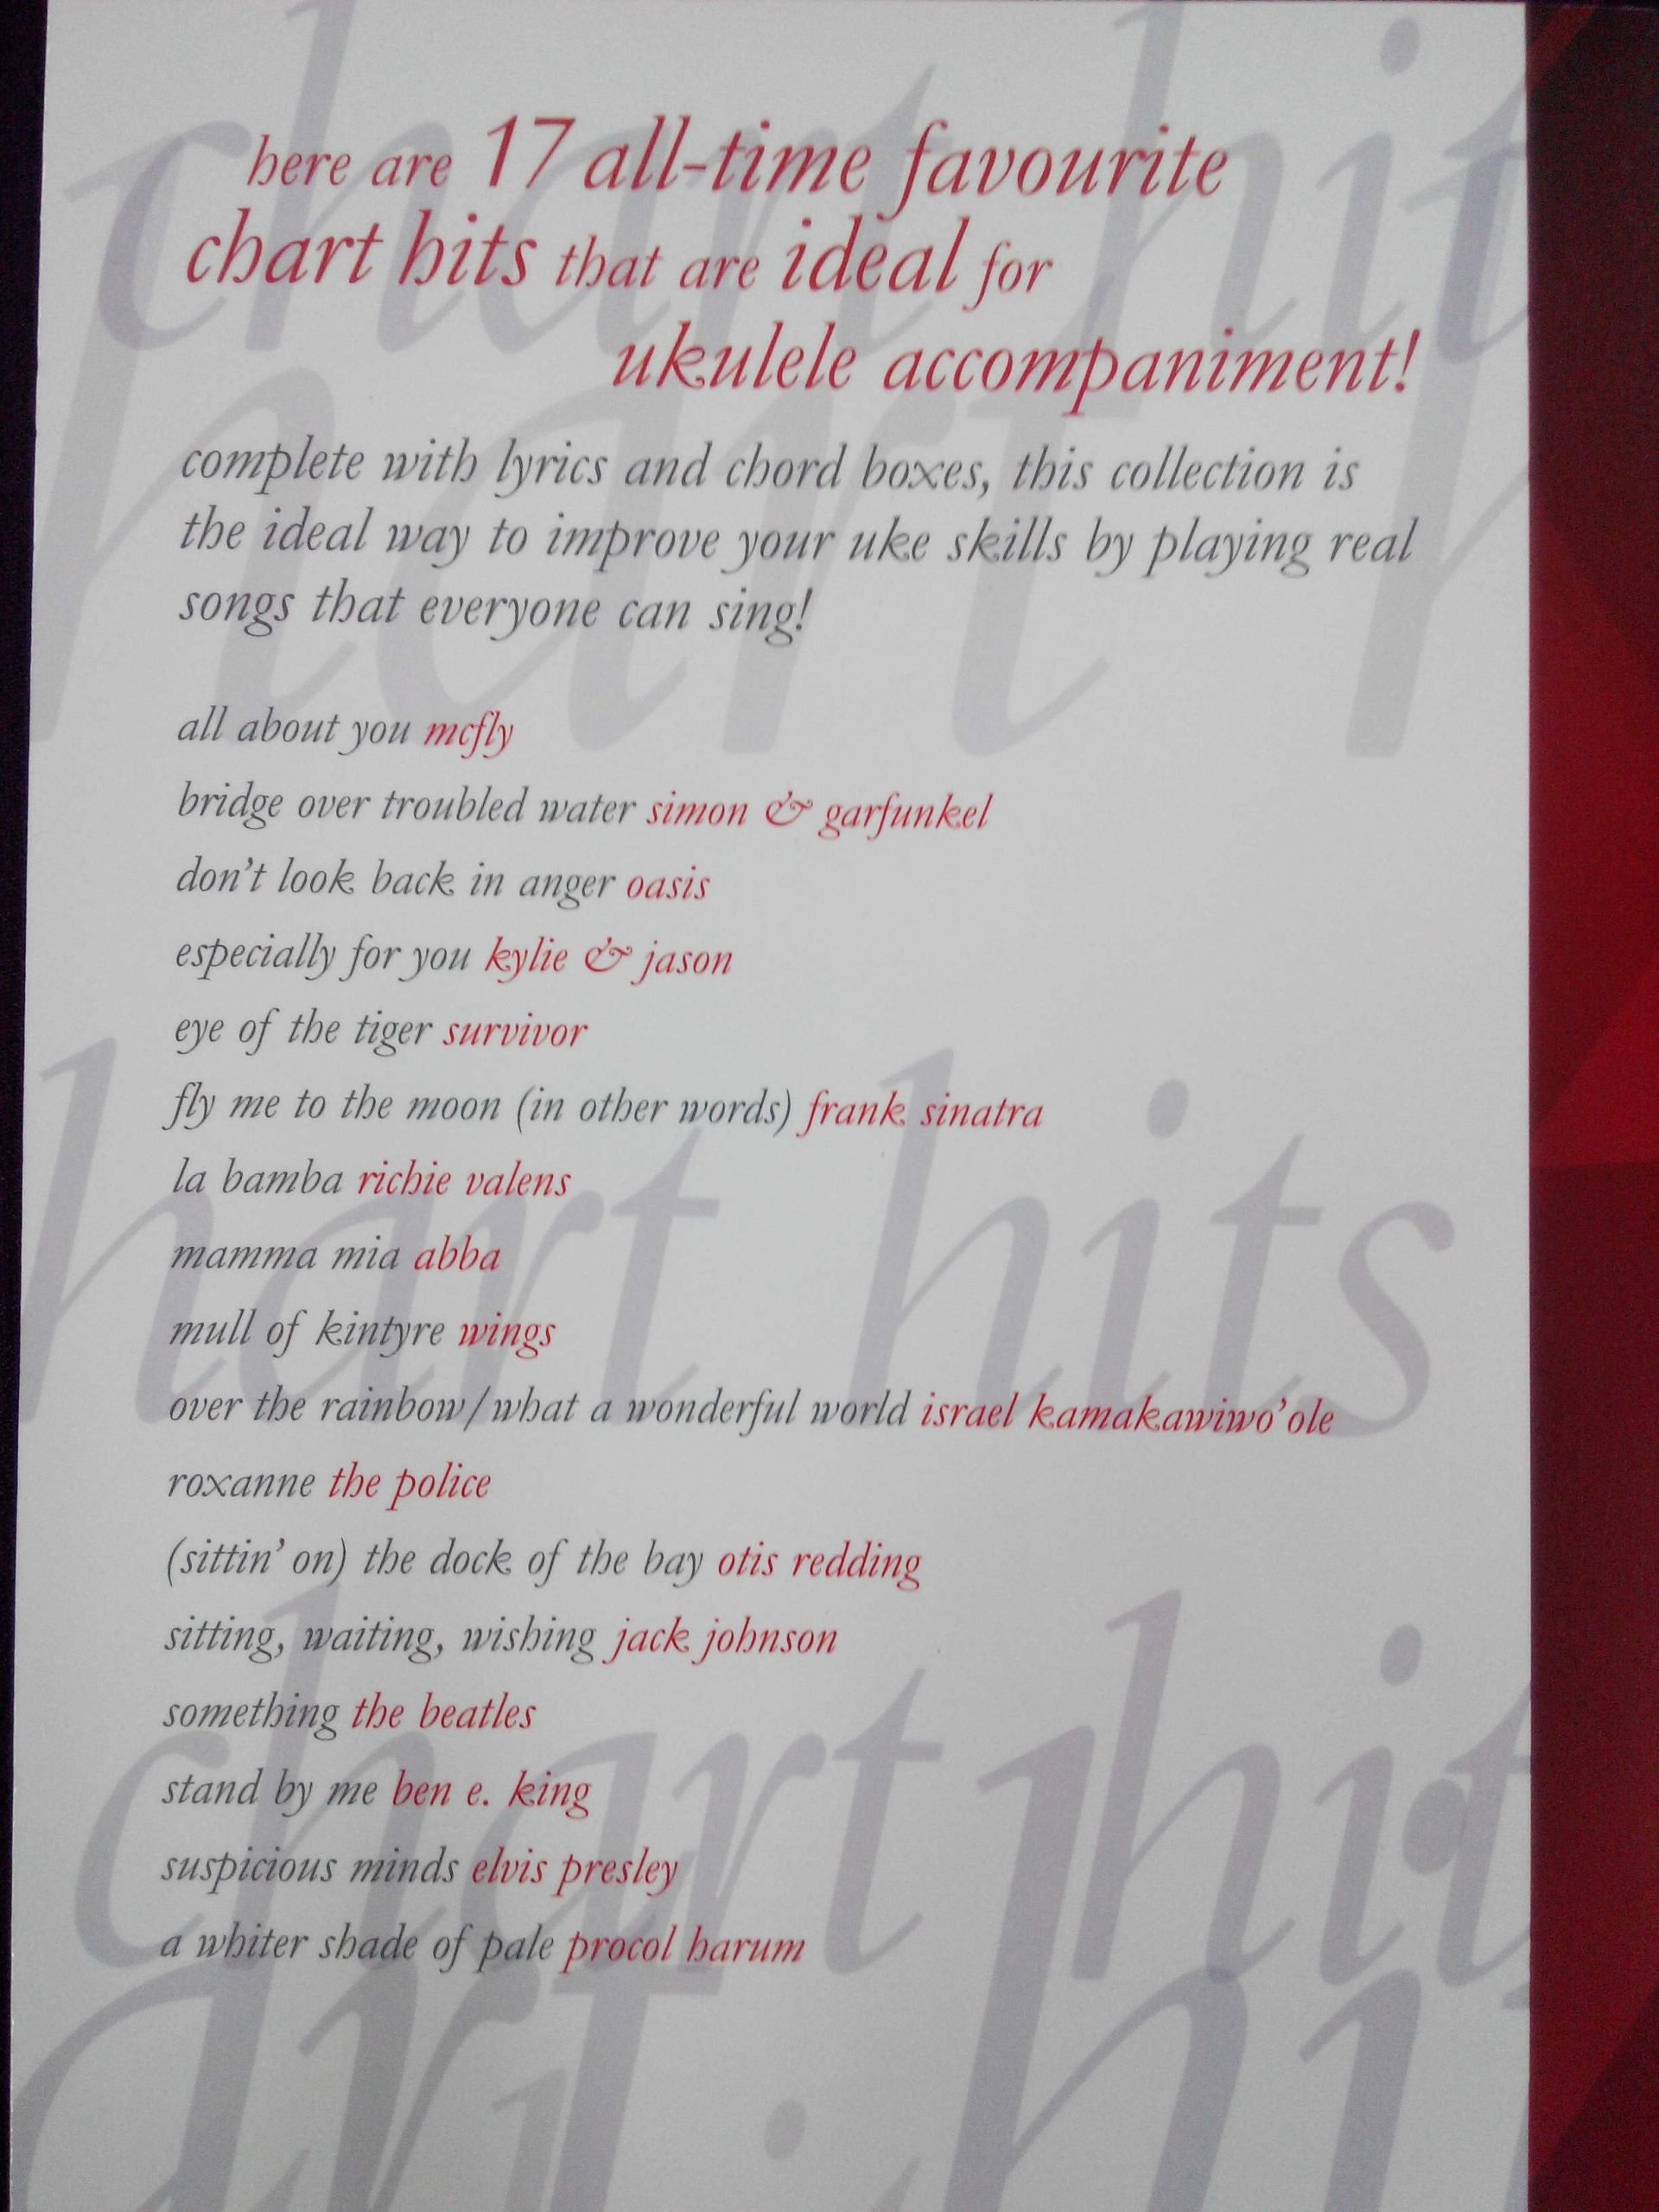 here are 17 all-time favourite
chart hits that are ideal for
ukulele accompaniment!
complete with lyrics and chord boxes, this collection is
the ideal way to improve your uke skills by playing real
songs that everyone can sing!
all about you mcfly
bridge over troubled water simon & garfunkel
don't look back in anger oasis
especially for you kylie & jason
eye of the tiger survivor
fly me to the moon (in other words) frank sinatra
la bamba richie valens
mamma mia abba
mull of kintyre wings
over the rainbow/what a wonderful world israel kamakawiwo'ole
roxanne the police
(sittin' on) the dock of the bay otis redding
sitting, waiting, wishing jack johnson
something the beatles
stand by me ben e. king
suspicious minds elvis presley
a whiter shade of pale procol harum
chart hit
hart h
hart hits
chart hit
art hit